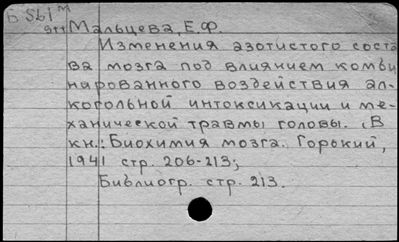 Б 561 м
911 Мальцева, Е.Ф.
Изменения азотистого соста
ва мозга под влиянием комби
нированного воздействия ал-
когольной интоксикации и ме-
ханической травмы головы. (В
кн.: Биохимия мозга. Горький,
1941 стр. 206-213;
Библиогр. стр. 213.